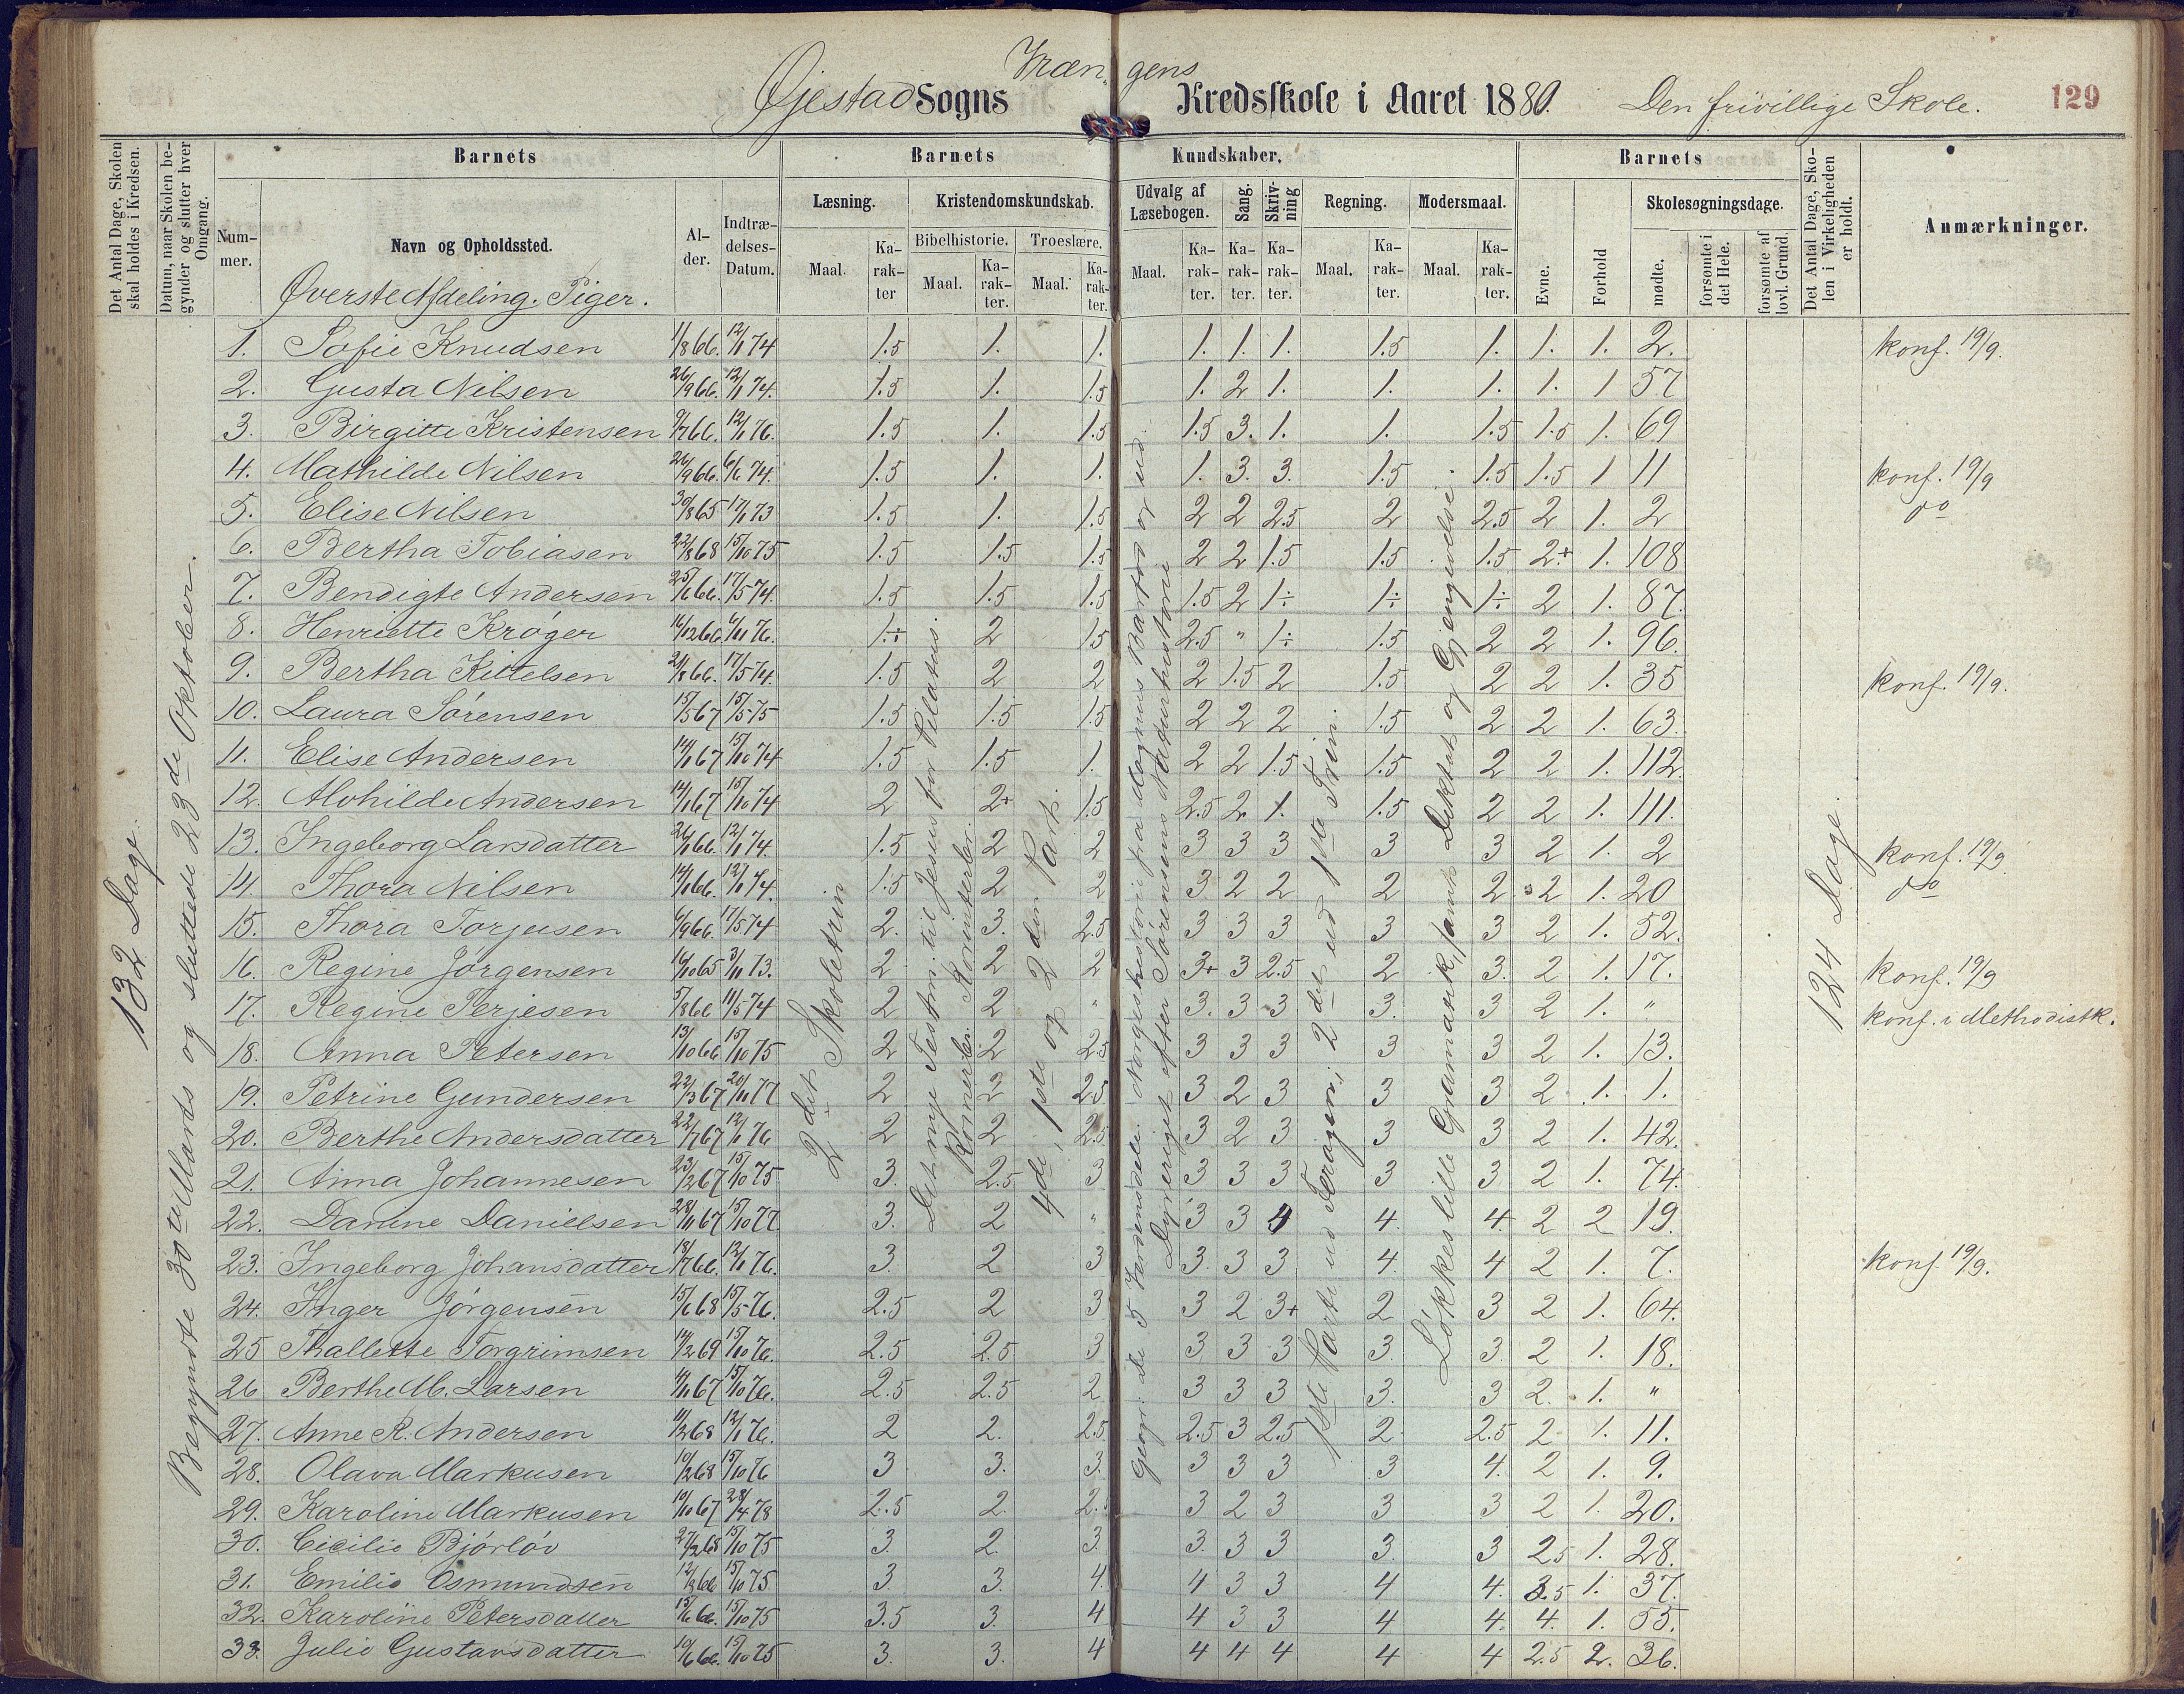 Vræn„gens
Øjestad Sogns Kredsskole i Aaret 1880. Den frivillige Skole. 129
Det Antal Dage, Skolen skal holdes i Kredsen.
Datum, naar Skolen begynder og slutter hver Omgang.
Barnets Barnets Kundskaber. Barnets
Det Antal Dage, Skolen i Virkeligheden er holdt.
Anmærkninger.
Nummer. Navn og Opholdssted. Alder. Indtrædelses-Datum.
Læsning. Kristendomskundskab. Udvalg af Læsebogen. Sang. Skrivning Regning. Modersmaal. Evne. Forhold Skolesøgningsdage.
Bibelhistorie. Troeslære.
Maal. Karakter Maal. Karakter. Maal. Karakter. Maal. Karakter. Karakter. Karakter. Maal. Karakter. Maal. Karakter. mødte. forsømte i det Hele. forsømte af lovl. Grund.
Øverste Afdeling. Piger.
132 Dage.
Begyndte 30te Mards og sluttede 23de Oktober.
2det Skoletrin
Det nye Testm. til Jesus for Pilatus.
Romerbr. Korinterbr.
4de, 1ste og 2den Part.
Geogr: De 5 Verdensdele. Norgeshistorie fra Magnus Barfod og ud.
Dyreriget efter Sørensens Naturhistorie
1ste Harte ud Feragen; 2det ud 1ste Trin.
Løkkes lille Gramatik, samt Diktat og Gjengivelse.
124 Dage
1. Sofie Knudsen 1/8 66. 12/1 74 1.5 1. 1. 1. 1. 1. 1.5 1. 1. 1. 2. konf. 19/9.
2. Gusta Nilsen 26/9 66. 12/1 74. 1.5 1. 1.5 1. 2 1. 1. 1. 1. 1 57
3. Birgitte Kristensen 9/7 66. 12/1 76. 1.5 1. 1.5 1.5 3. 1. 1. 1.5 1.5 1. 69
4. Mathilde Nilsen 26/9 66. 6/6 74. 1.5 1. 1. 1. 3. 3. 1.5 1.5 1.5 1 11 konf. 19/9
5. Elise Nilsen 30/8 65 17/1 73 1.5 1. 1.5 2 2 2.5 2 2.5 2 1. 2 do
6. Bertha Tobiasen 22/8 68 15/10 75 1.5 1.5 1.5 2 2 1.5 1.5 1.5 2+ 1. 108
7. Bendigte Andersen 25/6 66. 17/5 74. 1.5 1.5 1.5 1.5 2 1÷ 1÷ 1÷ 2 1. 87.
8. Henriette Krøger 16/12 66 6/11 76. 1.÷ 2 1.5 2.5 " 1÷ 1.5 2 2 1. 96.
9. Bertha Kittelsen 21/8 66. 17/5 74. 1.5 2 2 2 1.5 2 1.5 2 2 1. 35 konf. 19/9.
10. Laura Sørensen 15/5 67 15/5 75 1.5 1.5 1.5 2 2 2 1.5 2 2 1. 63.
11. Elise Andersen 14/1 67 15/10 74 1.5 1.5 1. 2 2 1.5 1.5 2 2 1. 112.
12. Alvhilde Andersen 14/1 67 15/10 74 2 2+ 1.5 2.5 2. 1. 1.5 2 2 1. 111.
13. Ingeborg Larsdatter 26/1 66. 12/1 74. 1.5 2 2 3 3 3 3 3 2 1. 2 konf. 19/9
14. Thora Nilsen 14/1 66. 12/1 74. 1.5 2 2 3 2 2 2 2 2 1. 20 do
15. Thora Torjusen 6/9 66. 17/5 74 2. 3. 2.5 3 3 3 3 3 2 1. 52.
16. Regine Jørgensen 16/10 65 3/11 73. 2 2 2 3+ 3 2.5 2 3. 2 1. 17. konf. 19/9
17. Regine Terjesen 5/8 66 11/5 74 2 2 " 3. 3 3 3. 3 2 1. " konf. i Methodistk.
18. Anna Petersen 13/10 66 15/10 75 2 2 2.5 3 3 3 3 3 2 1. 13.
19. Petrine Gundersen 22/3 67 20/11 77 2 2 2.5 3 2 3 3 3 2 1. 1.
20. Berthe Andersdatter 22/7 67 12/1 76 2 2 2.5 3 2 3 3 3 2 1. 42.
21. Anna Johannesen 23/2 67 15/10 75 3. 2.5 3 3 3 3 3 3 2 1. 74.
22. Danine Danielsen 28/11 67 15/10 77 3. 2 " 3 3 4 4. 4. 2 2 19.
23. Ingeborg Johansdatter 18/7 66. 12/1 76. 3. 2 3 3. 3 3 4. 4 2 1. 7. konf 19/9.
24. Inger Jørgensen 15/6 68 15/5 76. 2.5 2 3 3 2 3+ 2 3 2 1. 64.
25 Thallette Torgrimsen 14/2 69 15/10 76. 2.5 2.5 3 3 3 3 3. 3. 2 1. 18.
26 Berthe M. Larsen 4/11 67 15/10 76. 2.5 2.5 2 3 3 3 3. 3 2. 1. "
27. Anne R. Andersen 11/2 68 12/1 76. 2 2. 2.5 2.5 3 2.5 2 2.5 2 1. 11.
28. Olava Markusen 10/2 68 15/10 76 3 3. 3. 3 3 3 3 4. 2 1. 9.
29. Karoline Markusen 10/10 67 28/4 78 2.5 2. 2. 3 2 3 3 3 2 1. 20.
30. Cicilie Bjørløv 27/2 68 15/10 75 3. 2. 3. 3. 3 3 3. 3 2.5 1. 28.
31. Emilie Osmundsen 12/8 66 15/10 75 3. 3. 4. 4 3 3 4 4. 3.5 1. 37.
32. Karoline Petersdatter 15/6 66. 15/10 75 3.5 3. 4 4 3 3 4 4. 4. 1. 55.
33. Julie Gustavsdatter 10/6 66. 15/10 75 3. 3. 4 4 4 4 4 4 2.5 2. 36.